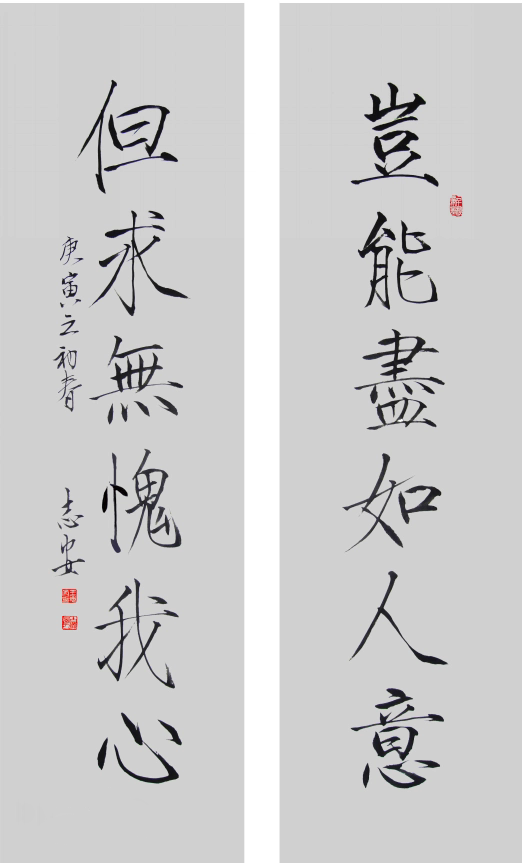 豈能盡如人意
但求無愧我心
庚寅之初春
志安